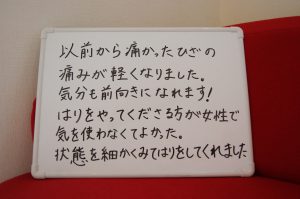 以前から痛かったひざの
痛みが軽くなりました。
気分も前向きになれます!
はりをやってくださる方が女性で
気を使わなくてよかった。
状態を細かくみてはりをしてくれました